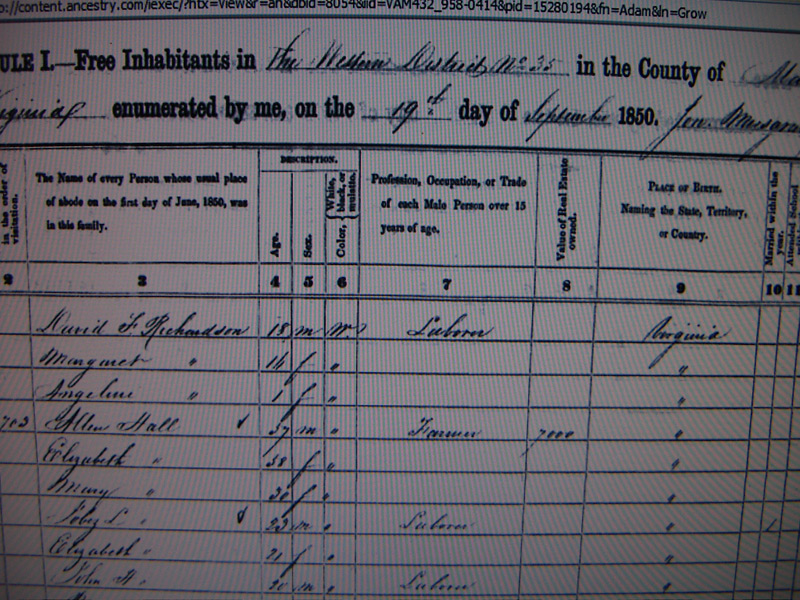 ://content.ancestry.com/iexec/?htx=View&r=an&dbid=8054&iid=VAM432_958-0414&pid=15280194&fn=Adam&ln=Grow
ULE I.—Free Inhabitants in The Western District No 35 in the County of
enumerated by me, on the 19th day of September 1850.
in the order of visitation.
The Name of every Person whose usual place of abode on the first day of June, 1850, was in this family.
DESCRIPTION.
Age.
Sex.
Color, White, black, or mulatto.
Profession, Occupation, or Trade of each Male Person over 15 years of age.
Value of Real Estate owned.
PLACE OF BIRTH. Naming the State, Territory, or Country.
Married within the year.
Attended School
2 3 4 5 6 7 8 9 10 11
David F. Richardson 18 m W. Labourer Virginia
Margaret " 14 f " "
Angeline " 1 f " "
703 Allen Hall 57 m " Farmer 7000 "
Elizabeth " 58 f " "
Mary " 30 f " "
" 23 m " Labourer " 1
Elizabeth " 21 f " "
John H. " 20 m " Labourer "